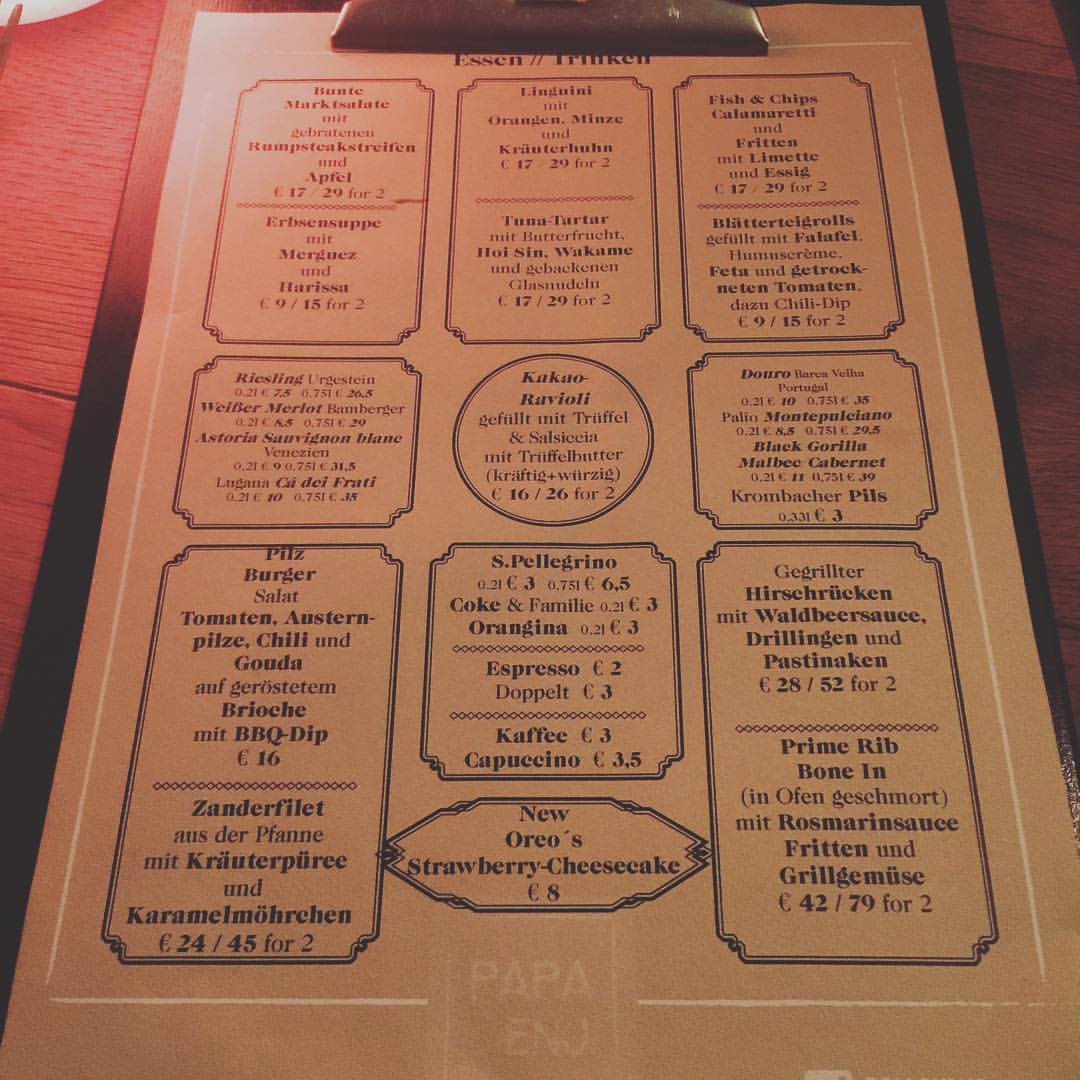 Essen // Trinken
Bunte
Marktsalate
mit
gebratenen
Rumpsteakstreifen
und
Apfel
€ 17 / 29 for 2
Erbsensuppe
mit
Merguez
und
Harissa
€ 9 / 15 for 2
Linguini
mit
Orangen, Minze
und
Kräuterhuhn
€ 17 / 29 for 2
Tuna-Tartar
mit Butterfrucht,
Hoi Sin, Wakame
und gebackenen
Glasnudeln
€ 17 / 29 for 2
Fish & Chips
Calamaretti
und
Fritten
mit Limette
und Essig
€ 17 / 29 for 2
Blätterteigrolls
gefüllt mit Falafel,
Humuscrème,
Feta und getrock-
neten Tomaten,
dazu Chili-Dip
€ 9 / 15 for 2
Riesling Urgestein
0,2l € 7,5 0,75l € 26,5
Weißer Merlot Bamberger
0,2l € 8,5 0,75l € 29
Astoria Sauvignon blanc
Venezien
0,2l € 9 0,75l € 31,5
Lugana Cá dei Frati
0,2l € 10 0,75l € 35
Kakao-
Ravioli
gefüllt mit Trüffel
& Salsiccia
mit Trüffelbutter
(kräftig+würzig)
€ 16 / 26 for 2
Douro Barca Velha
Portugal
0,2l € 10 0,75l € 35
Palio Montepulciano
0,2l € 8,5 0,75l € 29,5
Black Gorilla
Malbec/Cabernet
0,2l € 11 0,75l € 39
Krombacher Pils
0,33l € 3
Pilz
Burger
Salat
Tomaten, Austern-
pilze, Chili und
Gouda
auf geröstetem
Brioche
mit BBQ-Dip
€ 16
Zanderfilet
aus der Pfanne
mit Kräuterpüree
und
Karamelmöhrchen
€ 24 / 45 for 2
S.Pellegrino
0,2l € 3 0,75l € 6,5
Coke & Familie 0,2l € 3
Orangina 0,2l € 3
Espresso € 2
Doppelt € 3
Kaffee € 3
Capuccino € 3,5
New
Oreo´s
Strawberry-Cheesecake
€ 8
Gegrillter
Hirschrücken
mit Waldbeersauce,
Drillingen und
Pastinaken
€ 28 / 52 for 2
Prime Rib
Bone In
(in Ofen geschmort)
mit Rosmarinsauce
Fritten und
Grillgemüse
€ 42 / 79 for 2
PAPA
ENJ